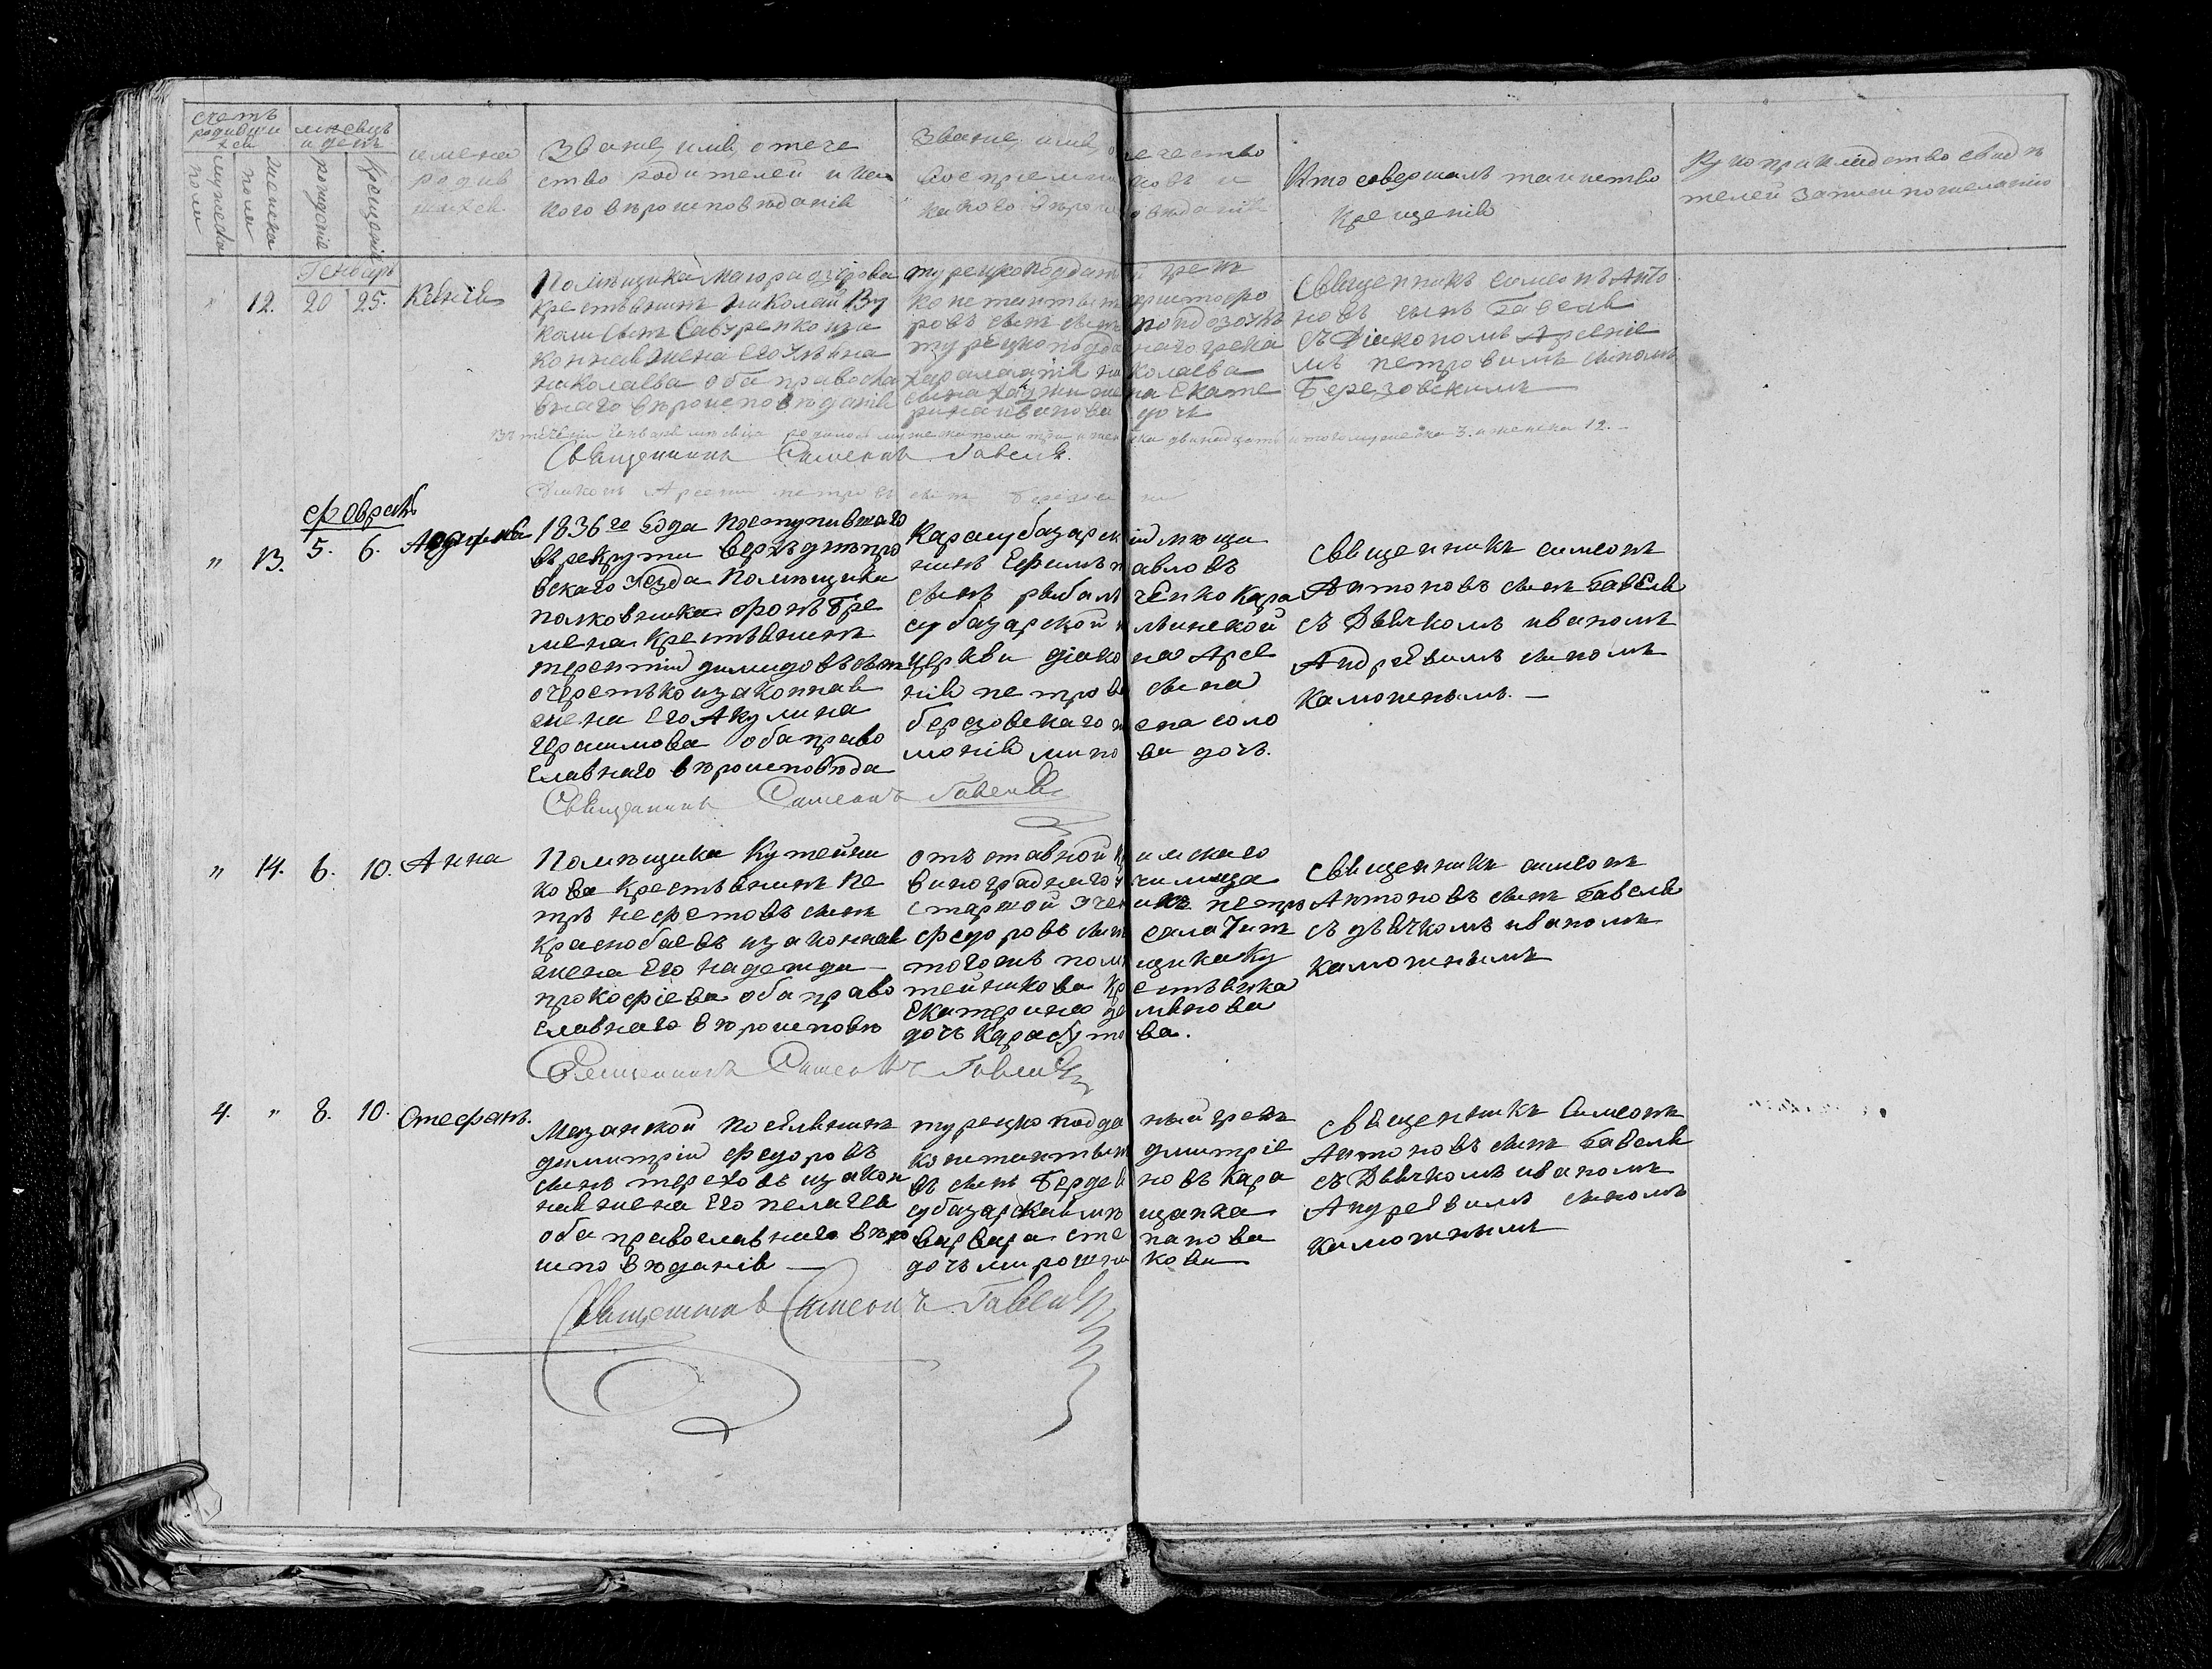 счетъ родившихся
мужеска пола
женска пола
месяцъ и день
рожденіе
крещеніе
имена родившихся
Званіе, имя, отечество родителей и какого вѣроисповѣданія
Званіе, имя, отечество воспріемниковъ и какого вѣроисповѣданія
Кто совершалъ таинство крещенія
Рукоприкладство свидѣтелей записи по желанію
Генварь
" 12. 20 25. Ксенія
Помѣщика Маіора
крестьянинъ Николай Ву
колов сынъ Савуренко и за
конная жена его Ульяна
николаева оба правосла
внаго вѣроисповѣданія
турецкоподданый грек
константинъ христофо
ровъ сынъ
турецкоподданаго грека
николаева
сына жена Екате
рина иванова дочь
Священникъ симеонъ Анто
новъ сынъ Гавеля
съ Діакономъ Арсеніе
мъ петровымъ сыномъ
Березовскимъ
Въ теченіи Генваря месяца родилось мужеска пола три и женска двенадцать итого мужеска 3. и женска 12. -
Священникъ Симеонъ Гавеля.
Діаконъ Арсеній петровъ сынъ
февраль
" 13. 5. 6.
1836го Года поступившаго
въ рекруты верхъднѣпро
вскаго уезда помѣщика
полковника фонъ Бре
мена крестьянинъ
терентій димидовъ сынъ
очеретько и законная
жена его Акулина
Герасимова оба право
славнаго вѣроисповѣда
Карасубазарскій мѣща
нинъ Ефимъ павловъ
сынъ рыбалченко кара
субазарской
церкви діакона Арсе
нія петрова сына
березовскаго жена соло
монія
дочь.
священникъ симеонъ
Антоновъ сынъ Гавеля
съ Дьячкомъ иваномъ
Андреевимъ сыномъ
каможнымъ. —
Священникъ Симеонъ Гавеля
" 14. 6. 10. Анна
Помѣщика Кутейни
кова крестьянинъ пе
тръ нефетовъ сынъ
краснобаевъ и законная
жена его надежда —
прокофіева оба право
славнаго вѣроисповѣ
отъ ставной крымскаго
винограднаго училища
старшой ученикъ петръ
федоровъ сынъ
тогожъ помѣщика Ку
тейникова крестьянка
Екатерина
дочь Карабутова.
священникъ симеонъ
Антоновъ сынъ Гавеля
съ дьячкомъ иваномъ
каможнымъ
Священникъ Симеонъ Гавеля
4. " 8. 10. Стефанъ.
Мазанской поселянинъ
димитрій федоровъ
сынъ тереховъ и закон
ная жена его пелагея
оба православнаго вѣро
исповѣданія —
турецкоподданый грекъ
константинъ дмитріе
въ сынъ Бердяновъ кара
субазарская мѣщанка
варвара степанова
дочь мирошникова
священникъ Симеонъ
Антоновъ сынъ Гавеля
съ Дьячкомъ иваномъ
Андреевимъ сыномъ
каможнымъ
Священникъ Симеонъ Гавеля